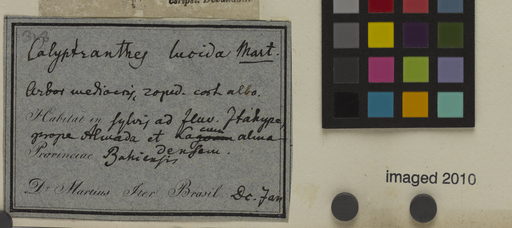 Calyptranthes lucida Mart.
Arbor mediocris, 20ped. cort. albo.
Habitat in sylvis ad fluv. Itahype,
prope Almada et
Provinciae Bahiensis
Dr. Martius Iter Brasil. Dc. Jan
imaged 2010